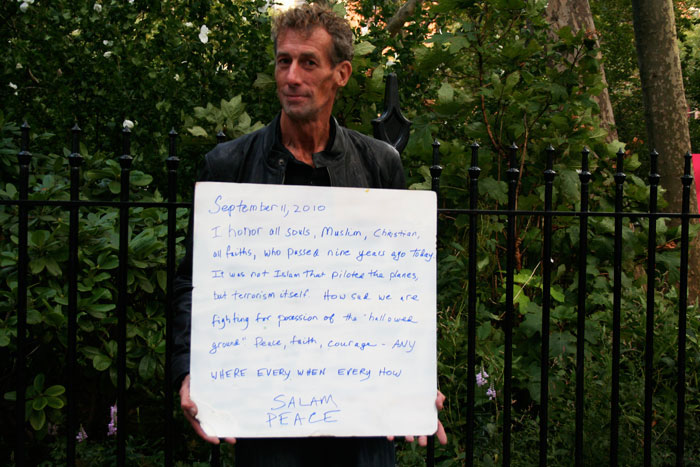 September 11, 2010
I honor all souls, Muslim, Christian,
all faiths, who passed nine years ago today.
It was not Islam that piloted the planes,
but terrorism itself. How sad we are
fighting for possession of the "hallowed
ground" Peace, faith, courage - ANY
WHERE EVERY WHEN EVERY HOW
SALAM
PEACE